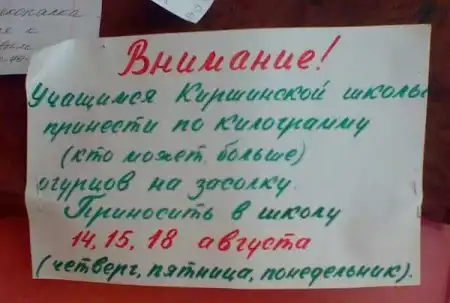 Внимание!
Учащимся Киршинской школы
принести по килограмму
(кто может больше)
огурцов на засолку.
Приносить в школу
14, 15, 18 августа
(четверг, пятница, понедельник).